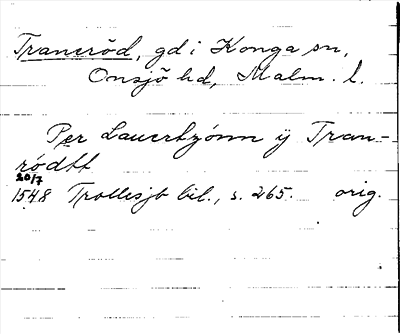 Trancröd, gd i Konga sn,
Onsjö hd, Malm. l.
Per Lauertzónn ÿ Tran-
södtt
20/7
1548 Trollesjb bil., s. 265. orig.